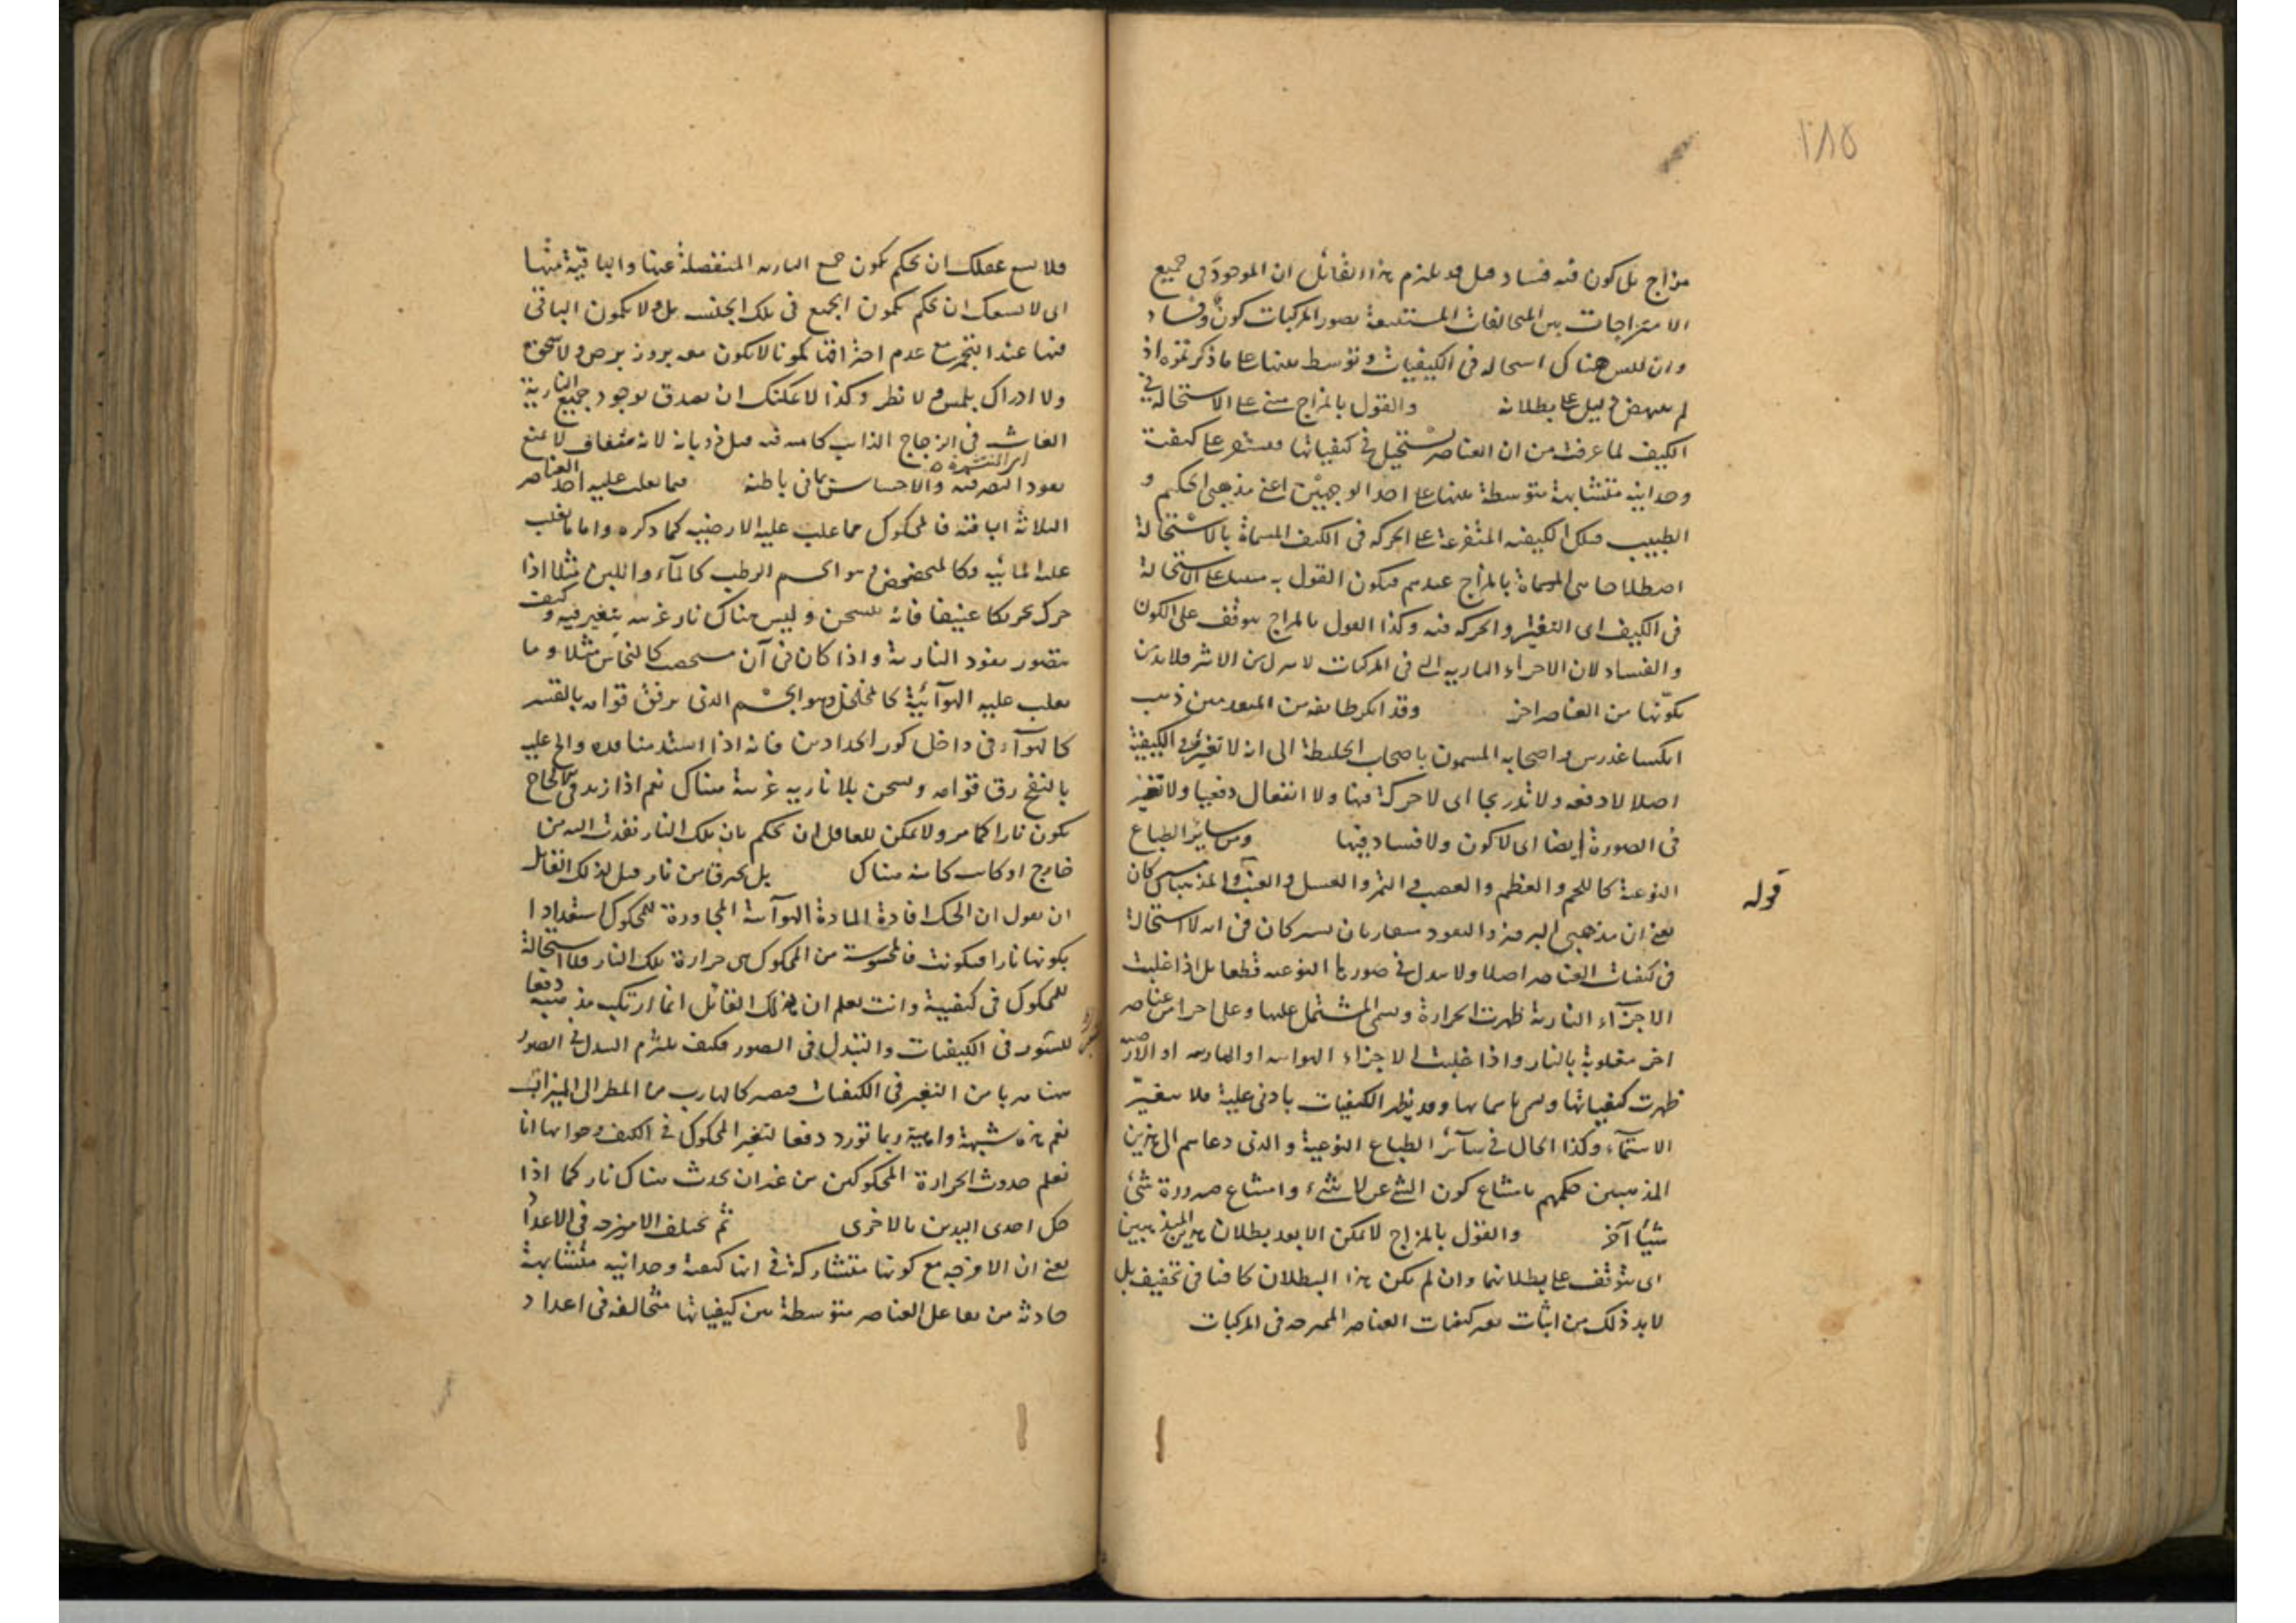 ٢٨٥
مزاج بل كون فيه فساد قيل قد يلزم هذا القائل ان الموجود في جميع
الامتزاجات بين المتخالفات المستتبعة بصور المركبات كون وفساد
وان ليس هناك استحالة في الكيفيات وتوسط بينها على ما ذكرتموه اذ
لم ينهض دليل على بطلانه والقول بالمزاج مبني على الاستحالة في
الكيف لما عرفت من ان العناصر تستحيل في كيفياتها فيستقر على كيفية
وحدانية متشابهة متوسطة بينها على احد الوجهين اعني مذهبي الحكيم و
الطبيب فتلك الكيفية المتفرعة على الحركة في الكيف المسماة بالاستحالة
اصطلاحا هي المسماة بالمزاج عندهم فيكون القول به على الاستحالة
في الكيف اي التغير والحركة فيه وكذا القول بالمزاج يتوقف على الكون
والفساد لان الاجزاء النارية التي في المركبات لا من الاثير فلا بد من
تكونها من العناصر اخر وقد انكر طائفة من المتقدمين ذهب
انكساغورس واصحابه المسمون باصحاب الخليط الى انه لا تغير في الكيفية
اصلا لا دفعة ولا تدريجا اي لا حركة فيها ولا انفعال دفعيا ولا تغير
في الصورة ايضا اي لا كون ولا فساد فيها ومن سائر الطبائع
قوله
النوعية كاللحم والعظم والعصب والتمر والعسل والعنب والمذهبان
يعني ان مذهبي البروز والنفود في انه لا استحالة
في كيفيات العناصر اصلا ولا تبدل في صورها النوعية قطعا بل اذا غلبت
الاجزاء النارية ظهرت الحرارة وسمي المشتمل عليها وعلى اجزاء من عناصر
اخر مغلوبة بالنار واذا غلبت الاجزاء الهوائية او المائية او الارضية
ظهرت كيفياتها وسمي باسمائها وقد يظهر الكيفيات بادنى غلبة فلا يتغير
الاسماء وكذا الحال في سائر الطبائع النوعية والذي دعاهم الى هذين
المذهبين حكمهم بامتناع كون الشيء عن لا شيء وامتناع صيرورة شيء
شيئا آخر والقول بالمزاج لا يمكن الا بعد بطلان هذين المذهبين
اي يتوقف على بطلانهما وان لم يكن هذا البطلان كافيا في تحقيقه بل
لا بد ذلك من اثبات تغير كيفيات العناصر الممتزجة في المركبات
فلا يسع عقلك ان تحكم بكون جميع النارية المنفصلة عنها والباقية فيها
اي لا يسعك ان تحكم بكمون الجميع في تلك الخشب بل ولا بكمون الباقي
فيها عند التجمر مع عدم احتراقها كمونا لا يكون معه بروز برض ولا سحق
ولا ادراك بلمس ولا نظر وكذا لا يمكنك ان تصدق بوجود جميع النارية
الفاشية في الزجاج الذائب كامنة فيه قبل ذوبانه لانه شفاف لا يمنع
نفود البصر فيه والاحساس بما في باطنه فما يغلب عليه احد العناصر
الثلاثة الباقية فالمحكوك مما غلب عليه الارضية كما ذكره واما ما يغلب
عليه المائية فكالمخضخض وهو الجسم الرطب كالماء واللبن مثلا اذا
حرك تحريكا عنيفا فانه يتسخن وليس هناك نار غريبة بتغير فيه وكيف
يتصور نفود النارية واذا كان في آن كالنحاس مثلا وما
يغلب عليه الهوائية كالمخلخل وهو الجسم الذي يرقق قوامه بالقسر
كالهواء في داخل كور الحدادين فانه اذا استد منافذه والح عليه
بالنفخ رق قوامه وسخن بلا نارية غريبة هناك نعم اذا زيد في الالحاح
يكون نارا كما مر ولا يمكن للعاقل ان يحكم بان تلك النار نفذت اليه من
خارج او كانت كامنة هناك بل يحرق من نار قيل لذلك القائل
ان يقول ان الحك افادة المادة الهوائية المجاورة للمحكوك استعدادا
بكونها نارا فتكونت فالمحسوسة من المحكوك هي حرارة تلك النار فلا استحالة
للمحكوك في كيفية وانت تعلم ان ذلك القائل انما ارتكب مذهبه دفعا
للتغير في الكيفيات والتبدل في الصور فكيف يلتزم التبدل في الصور
هنا هربا من التغير في الكيفيات فيصير كالهارب من المطر الى الميزاب
نعم هذه شبهة واهية ربما تورد دفعا لتغير المحكوك في الكيف وجوابها انا
نعلم حدوث الحرارة المحكوكين من غير ان يحدث هناك نار كما اذا
حك احدى اليدين بالاخرى ثم تختلف الامزجة في الاعداد
يعني ان الامزجة مع كونها متشاركة في انها كيفية وحدانية متشابهة
حادثة من تفاعل العناصر متوسطة بين كيفياتها متخالفة في اعداد